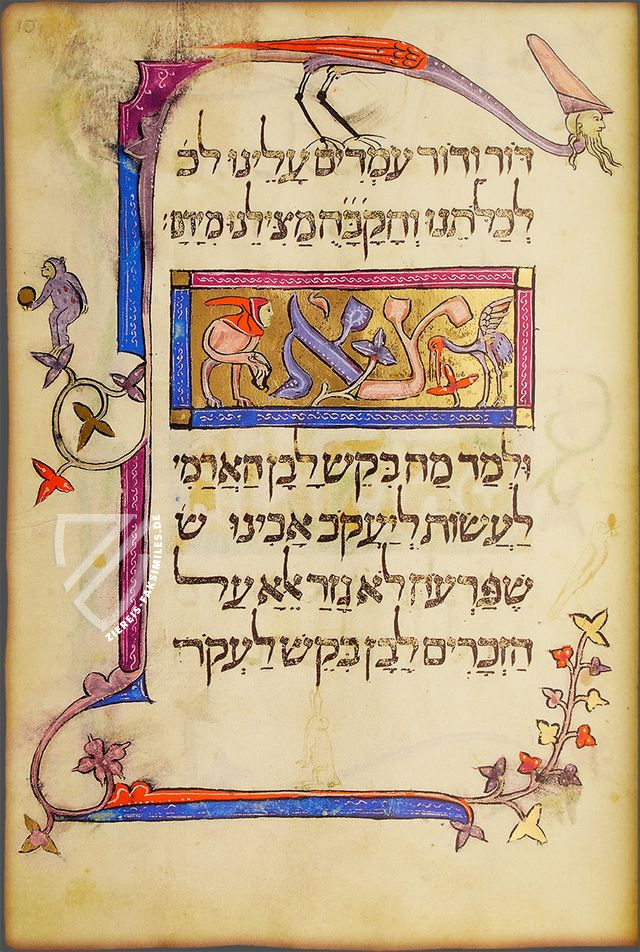 דור ודור עמדים עלינו לכ
לכלתנו והקבה מצילנו מידם:
צא
ולמד מה בקש לבן הארמי
לעשות ליעקב אבינו ש
שפרעה לא גזר אלא על
הזכרים לבן בקש לעקר
ZIEREIS-FAKSIMILES.DE